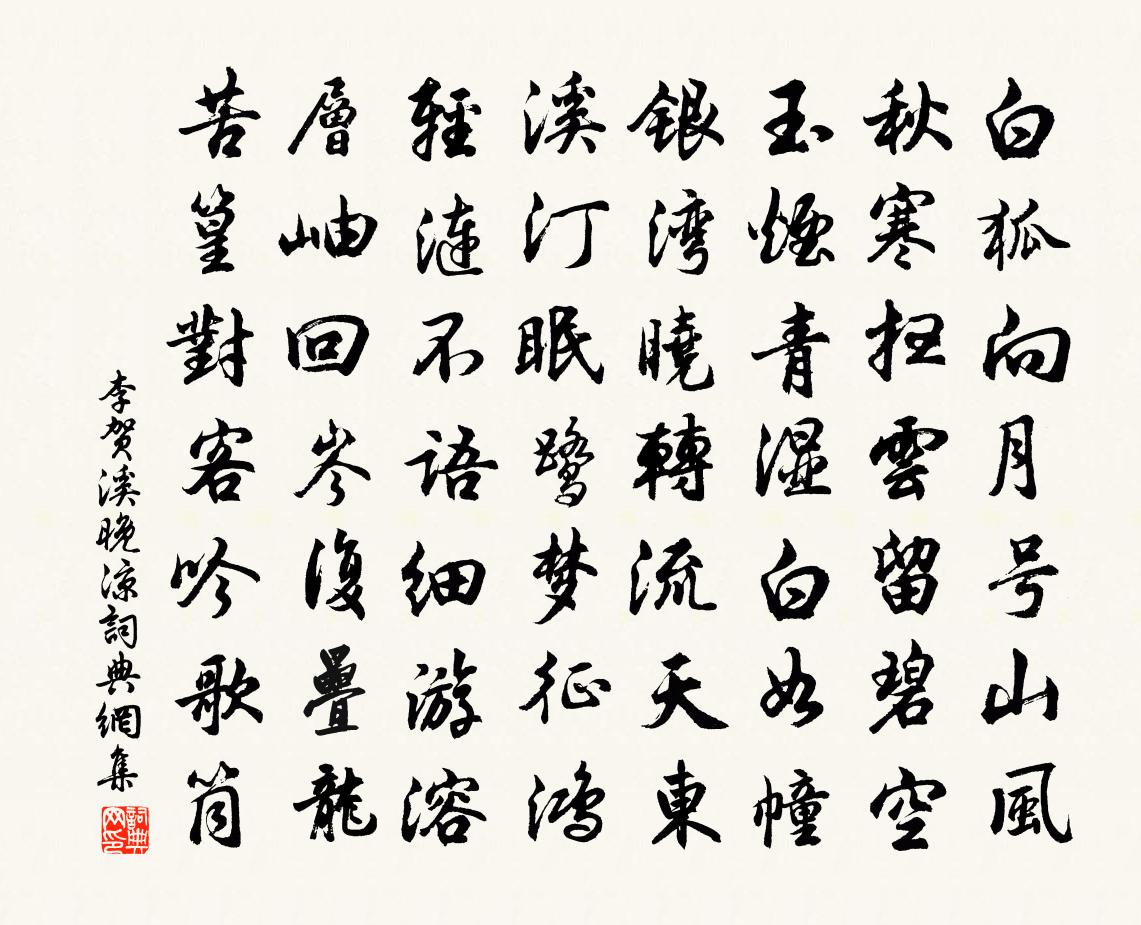 白狐向月号山風
秋寒扫雲留碧空
玉煙青湿白如幢
銀湾曉轉流天東
溪汀眠鷺梦征鸿
輕漣不語細游溶
層岫回岑復疊龍
苦篁對客吟歌筒
李贺溪晚凉詞典網集
詞典网印